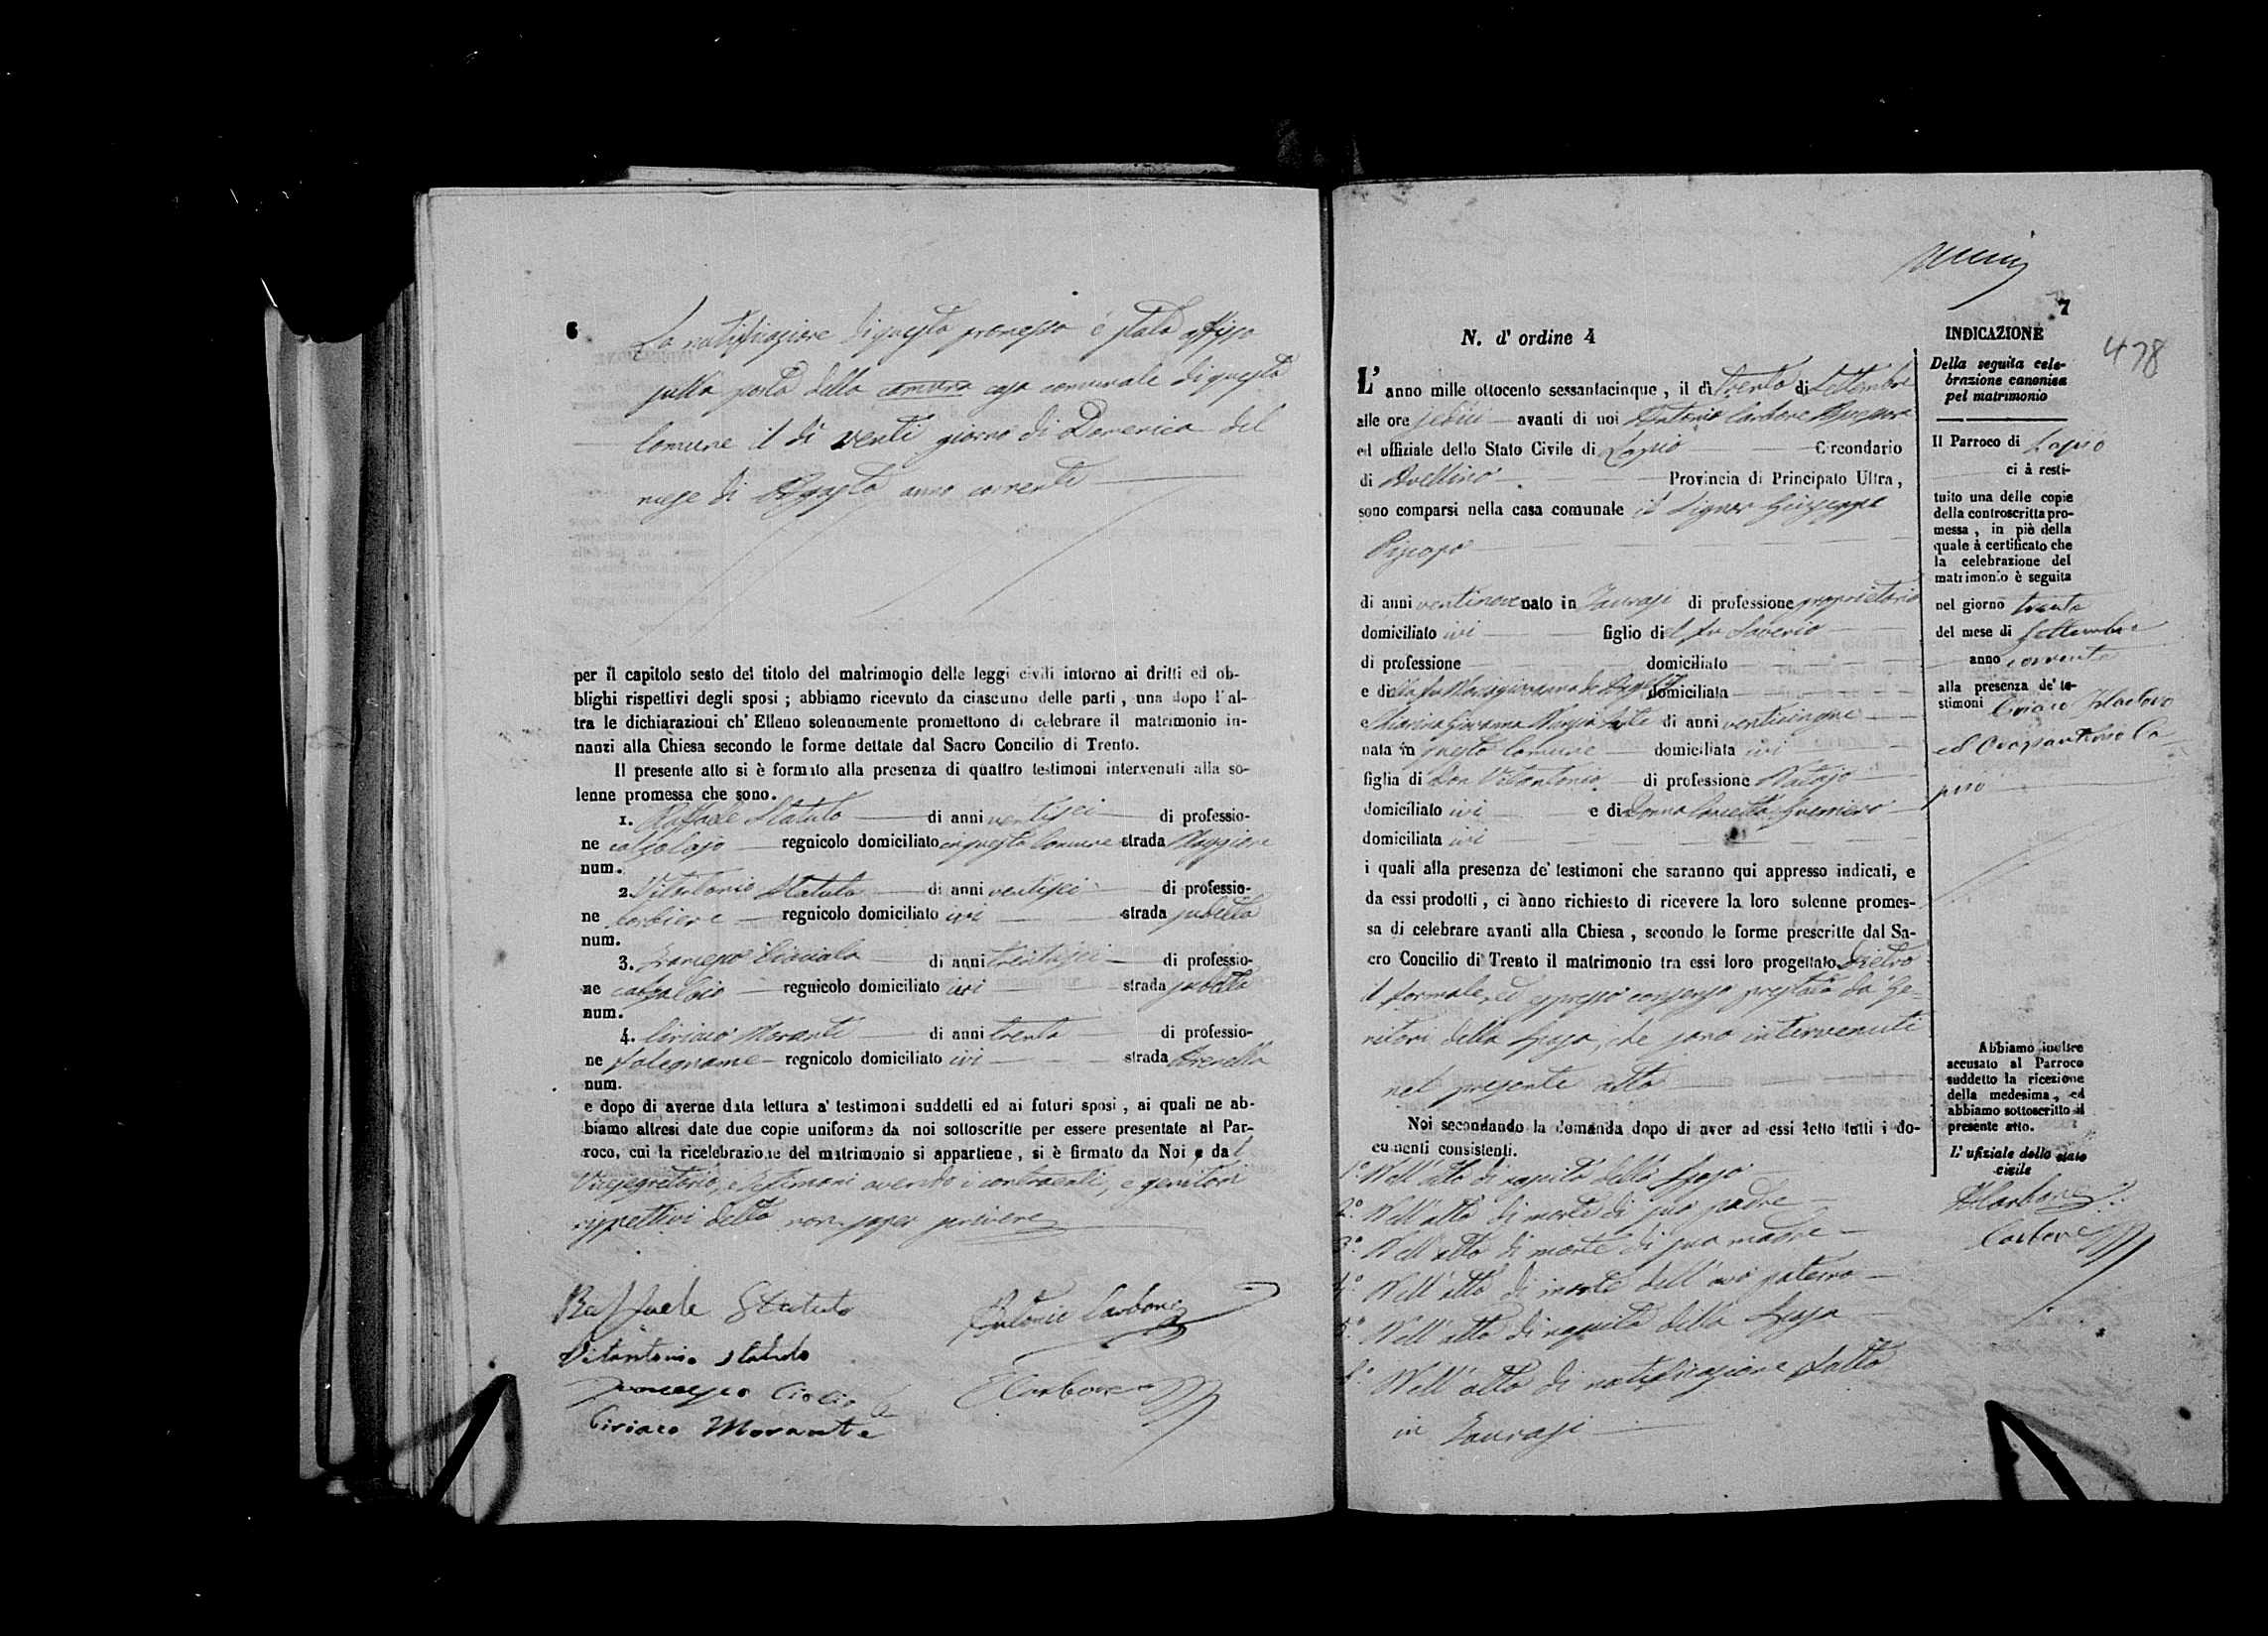 6
La notificazione di questa promessa è stata affissa
sulla porta della camera casa comunale di questo
Comune il dì venti giorno di Domenica del
mese di Agosto anno corrente
per il capitolo sesto del titolo del matrimonio delle leggi civili intorno ai dritti ed ob-
blighi rispettivi degli sposi ; abbiamo ricevuto da ciascuno delle parti , una dopo l'al-
tra le dichiarazioni ch' Elleno solennemente promettono di celebrare il matrimonio in-
nanzi alla Chiesa secondo le forme dettate dal Sacro Concilio di Trento.
Il presente atto si è formato alla presenza di quattro testimoni intervenuti alla so-
lenne promessa che sono.
1. Raffaele Statuto di anni ventisei di professio-
ne calzolajo regnicolo domiciliato in questo Comune strada Maggiore
num.
2. Vitantonio Statuto di anni ventisei di professio-
ne barbiere regnicolo domiciliato ivi strada
num.
3. di anni trentasei di professio-
ne regnicolo domiciliato ivi strada
num.
4. Ciriaco Morante di anni trenta di professio-
ne falegname regnicolo domiciliato ivi strada
num.
e dopo di averne data lettura a' testimoni suddetti ed ai futuri sposi , ai quali ne ab-
biamo altresì date due copie uniforme da noi sottoscritte per essere presentate al Par-
roco, cui la ricelebrazione del matrimonio si appartiene , si è firmato da Noi e dal
Vicesegretario, e testimoni avendo i contraenti, e genitori
rispettivi detto non saper scrivere
Raffaele Statuto Antonio Carbone
Vitantonio Statuto
Carbone
Ciriaco Morante
7
478
N. d' ordine 4
L' anno mille ottocento sessantacinque , il dì trenta di Settembre
alle ore sedici avanti di noi Antonio Carbone Assessore
ed uffiziale dello Stato Civile di Lapio Circondario
di Avellino Provincia di Principato Ultra ,
sono comparsi nella casa comunale il Signor Giuseppe
Piscopo
di anni ventinove nato in Taurasi di professione proprietario
domiciliato ivi figlio del fu Saverio
di professione domiciliato
e della fu Mariagiovanna de domiciliata
e Maria Giovanna di anni venticinque
nata in questo Comune domiciliata ivi
figlia di Don Vitantonio di professione Notajo
domiciliato ivi e di Donna Concetta Guerriero
domiciliata ivi
i quali alla presenza de' testimoni che saranno qui appresso indicati, e
da essi prodotti , ci ànno richiesto di ricevere la loro solenne promes-
sa di celebrare avanti alla Chiesa , secondo le forme prescritte dal Sa-
cro Concilio di Trento il matrimonio tra essi loro progettato. Dietro
il formale, ed espresso consenso prestato da' ge-
nitori della sposa, che sono intervenuti
nel presente atto
Noi secondando la domanda dopo di aver ad essi letto tutti i do-
cumenti consistenti.
1.° Nell' atto di nascita dello sposo
2.° Nell' atto di morte di suo padre
3.° Nell' atto di morte di sua madre
4.° Nell' atto di morte dell' avo paterno
5.° Nell' atto di nascita della sposa
6.° Nell' atto di notificazione fatto
in Taurasi
INDICAZIONE
Della seguita cele-
brazione canonica
pel matrimonio
Il Parroco di Lapio
ci à resti-
tuito una delle copie
della controscritta pro-
messa , in piè della
quale à certificato che
la celebrazione del
matrimonio è seguita
nel giorno trenta
del mese di Settembre
anno corrente
alla presenza de' te-
stimoni Ciriaco
ed Crisantonio Ca-
Abbiamo inoltre
accusato al Parroco
suddetto la ricezione
della medesima, ed
abbiamo sottoscritto il
presente atto.
L' ufiziale dello stato
civile
A Carbone
Carbone